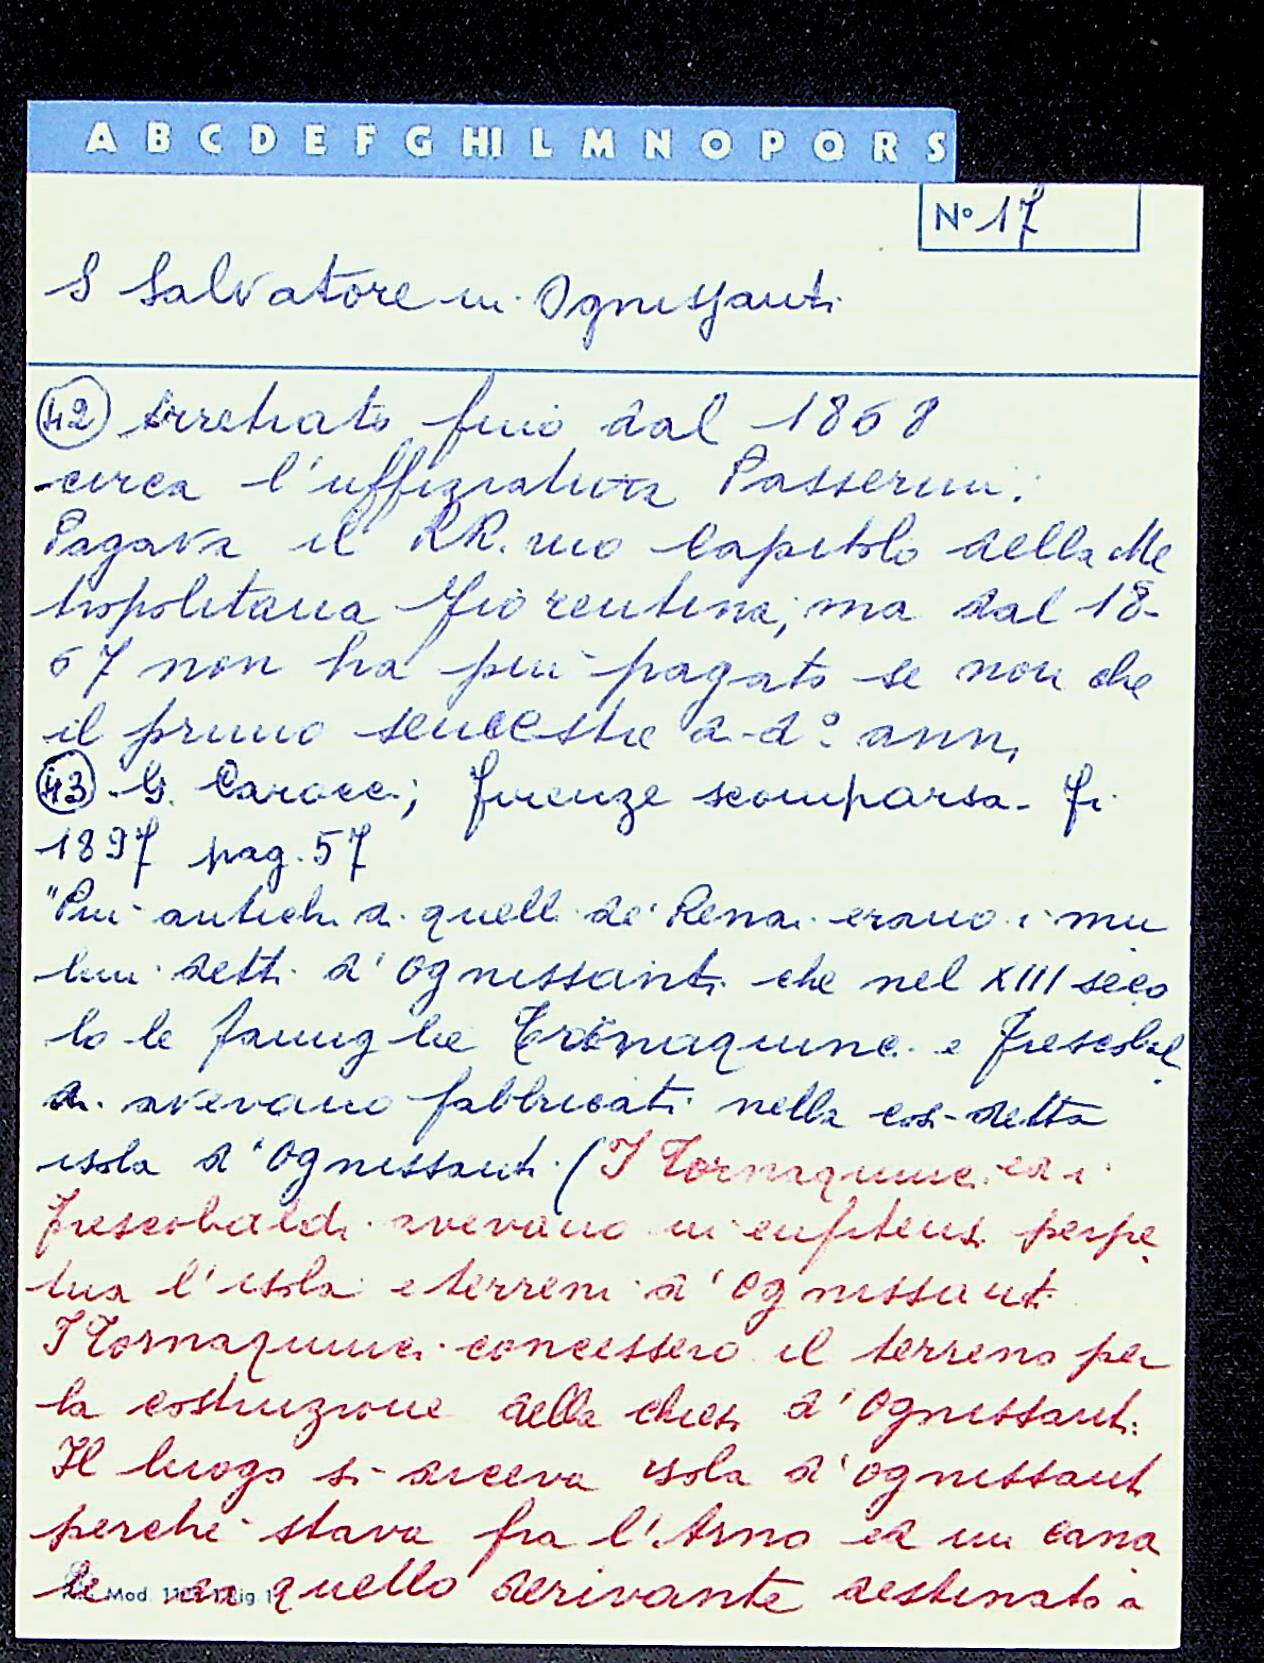 A B C D E F G HI L M N O P Q R S
N° 17
S Salvatore in Ognissanti
42 Arretrato fino dal 1868
circa l'uffiziatura Passerini:
Pagava il RR.mo Capitolo della Me
tropolitana Fiorentina, ma dal 18-
67 non ha più pagato se non che
il primo semestre a d° ann,
43 G. Carocci; Firenze scomparsa - Fi
1897 pag. 57
"Più antichi di quelli de' Renai erano i mu
lini detti d'Ognissanti che nel XIII seco
lo le famiglie Tornaquinci e Frescobal
di avevano fabbricati nella così detta
isola d'Ognissanti (I Tornaquinci ed i
Frescobaldi avevano in enfiteusi perpe
tua l'isola e terreni d'Ognissanti
I Tornaquinci concessero il terreno per
la costruzione della chiesa d'Ognissanti.
Il luogo si diceva isola d'Ognissanti
perché stava fra l'Arno ed un cana
le da quello derivante destinato a
Mod.